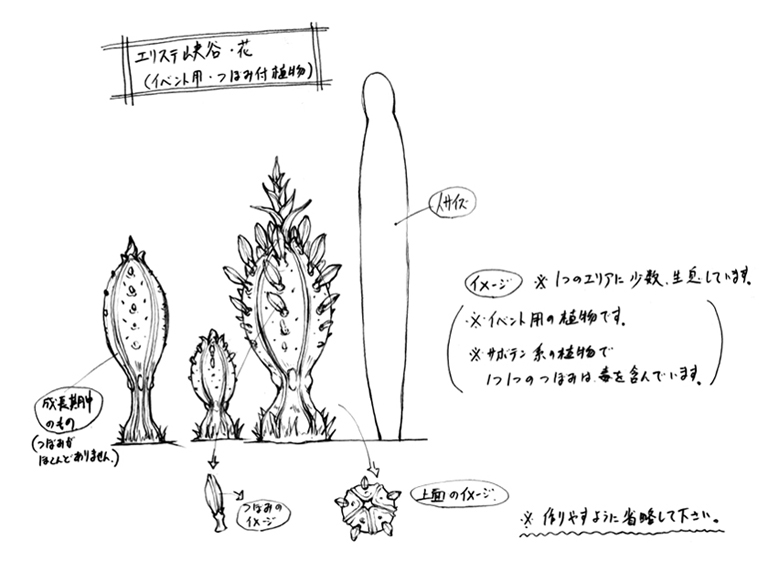 エリステ峡谷・花
(イベント用・つぼみ付植物)
人サイズ
イメージ ※ 1つのエリアに少数、生息しています。
※ イベント用の植物です。
※ サボテン系の植物で
1つ1つのつぼみは、毒を含んでいます。
成長期中
のもの
(つぼみが
ほとんどありません。)
つぼみの
イメージ
上面のイメージ
※ 作りやすように省略して下さい。